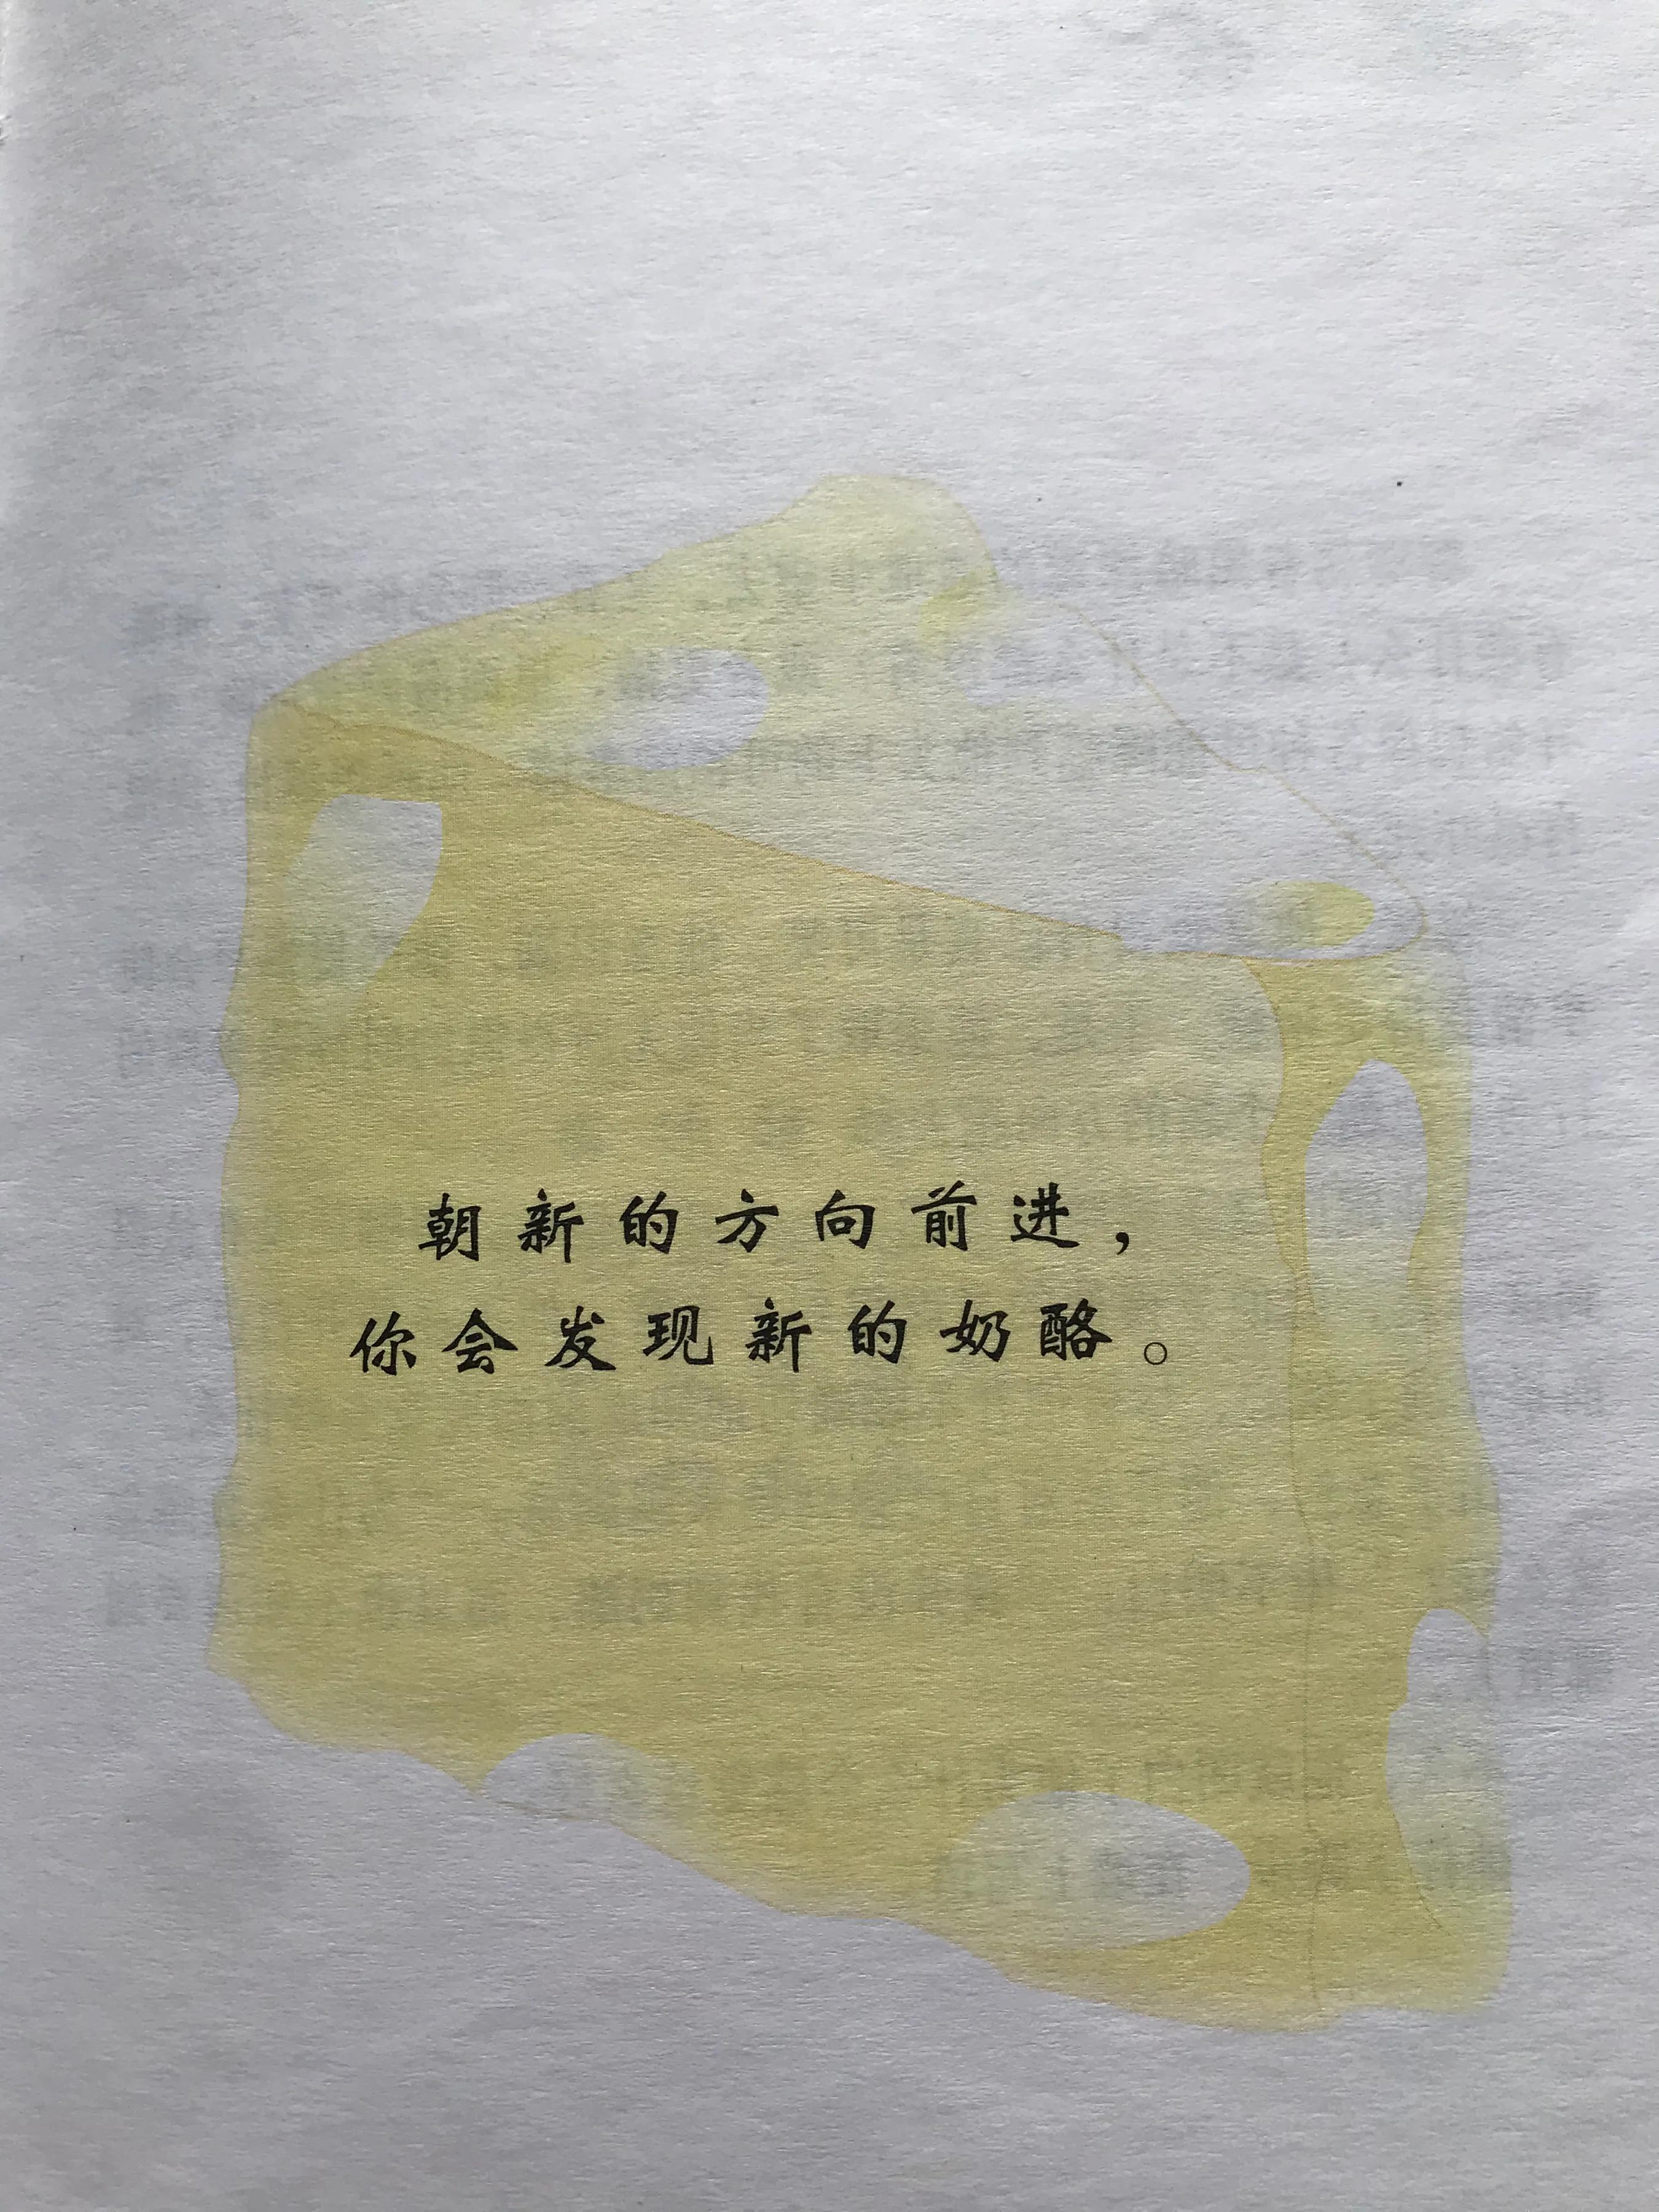 朝新的方向前进，
你会发现新的奶酪。